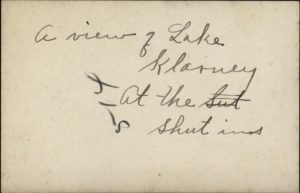 A view of Lake
Klarney
At the Sut
Shut ins